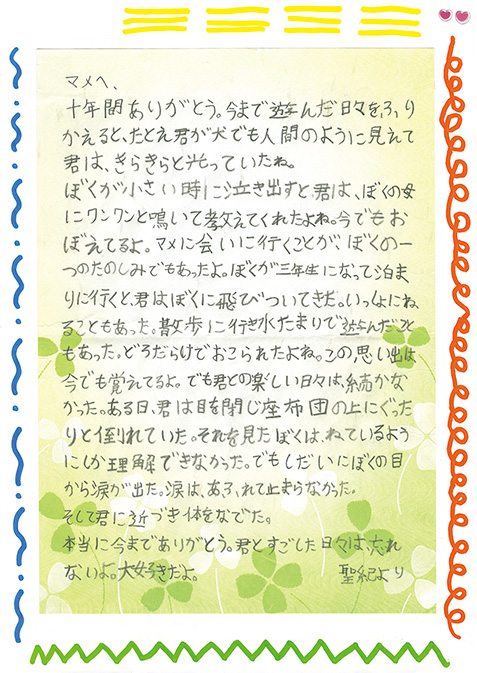 マメへ、
十年間ありがとう。今まで遊んだ日々を、ふり
かえると、たとえ君が犬でも人間のように見えて
君は、きらきらと光っていたね。
ぼくが小さい時に泣き出すと君は、ぼくの母
にワンワンと鳴いて教えてくれたよね。今でもお
ぼえてるよ。マメに会いに行くことがぼくの一
つのたのしみでもあったよ。ぼくが三年生になって泊ま
りに行くと、君はぼくに飛びついてきだ。いっしょにね
ることもあった。散歩に行き水たまりで遊んだこと
もあった。どろだらけでおこられたよね。この思い出は
今でも覚えてるよ。でも君との楽しい日々は、続かな
かった。ある日、君は目を閉じ座布団の上にぐった
りと倒れていた。それを見たぼくは、ねているよう
にしか理解できなかった。でもしだいにぼくの目
から涙が出た。涙は、あふれて止まらなかった。
そして君に近づき体をなでた。
本当に今までありがとう。君とすごした日々は、忘れ
ないよ。大好きだよ。 聖紀より